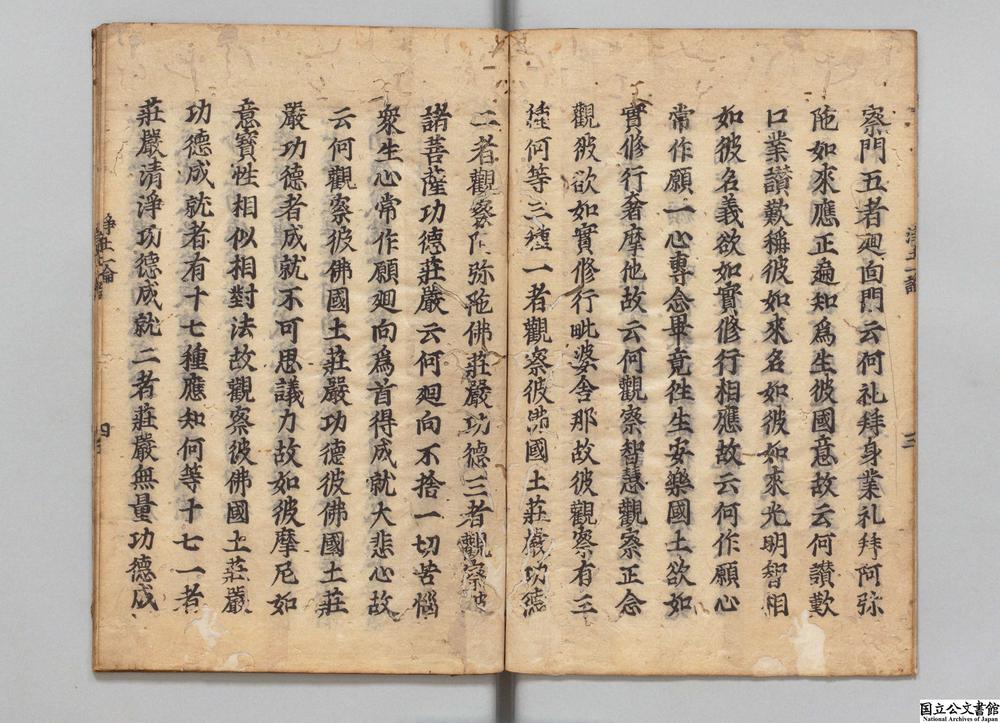 察門五者廻向門云何礼拜身業礼拜阿弥
陁如來應正遍知爲生彼國意故云何讃歎
口業讃歎稱彼如來名如彼如來光明智相
如彼名義欲如實修行相應故云何作願心
常作願一心專念畢竟徃生安樂國土欲如
實修行奢摩他故云何觀察智慧觀察正念
觀彼欲如實修行毗婆舍那故彼觀察有三
種何等三種一者觀察彼佛國土莊嚴功德
二者觀察阿弥陁佛莊嚴功德三者觀察彼
諸菩薩功德莊嚴云何廻向不捨一切苦惱
衆生心常作願廻向爲首得成就大悲心故
云何觀察彼佛國土莊嚴功德彼佛國土莊
嚴功德者成就不可思議力故如彼摩尼如
意寳性相似相對法故觀察彼佛國土莊嚴
功德成就者有十七種應知何等十七一者
莊嚴清淨功德成就二者莊嚴無量功德成
淨土論
三
淨土論
四
国立公文書館
National Archives of Japan